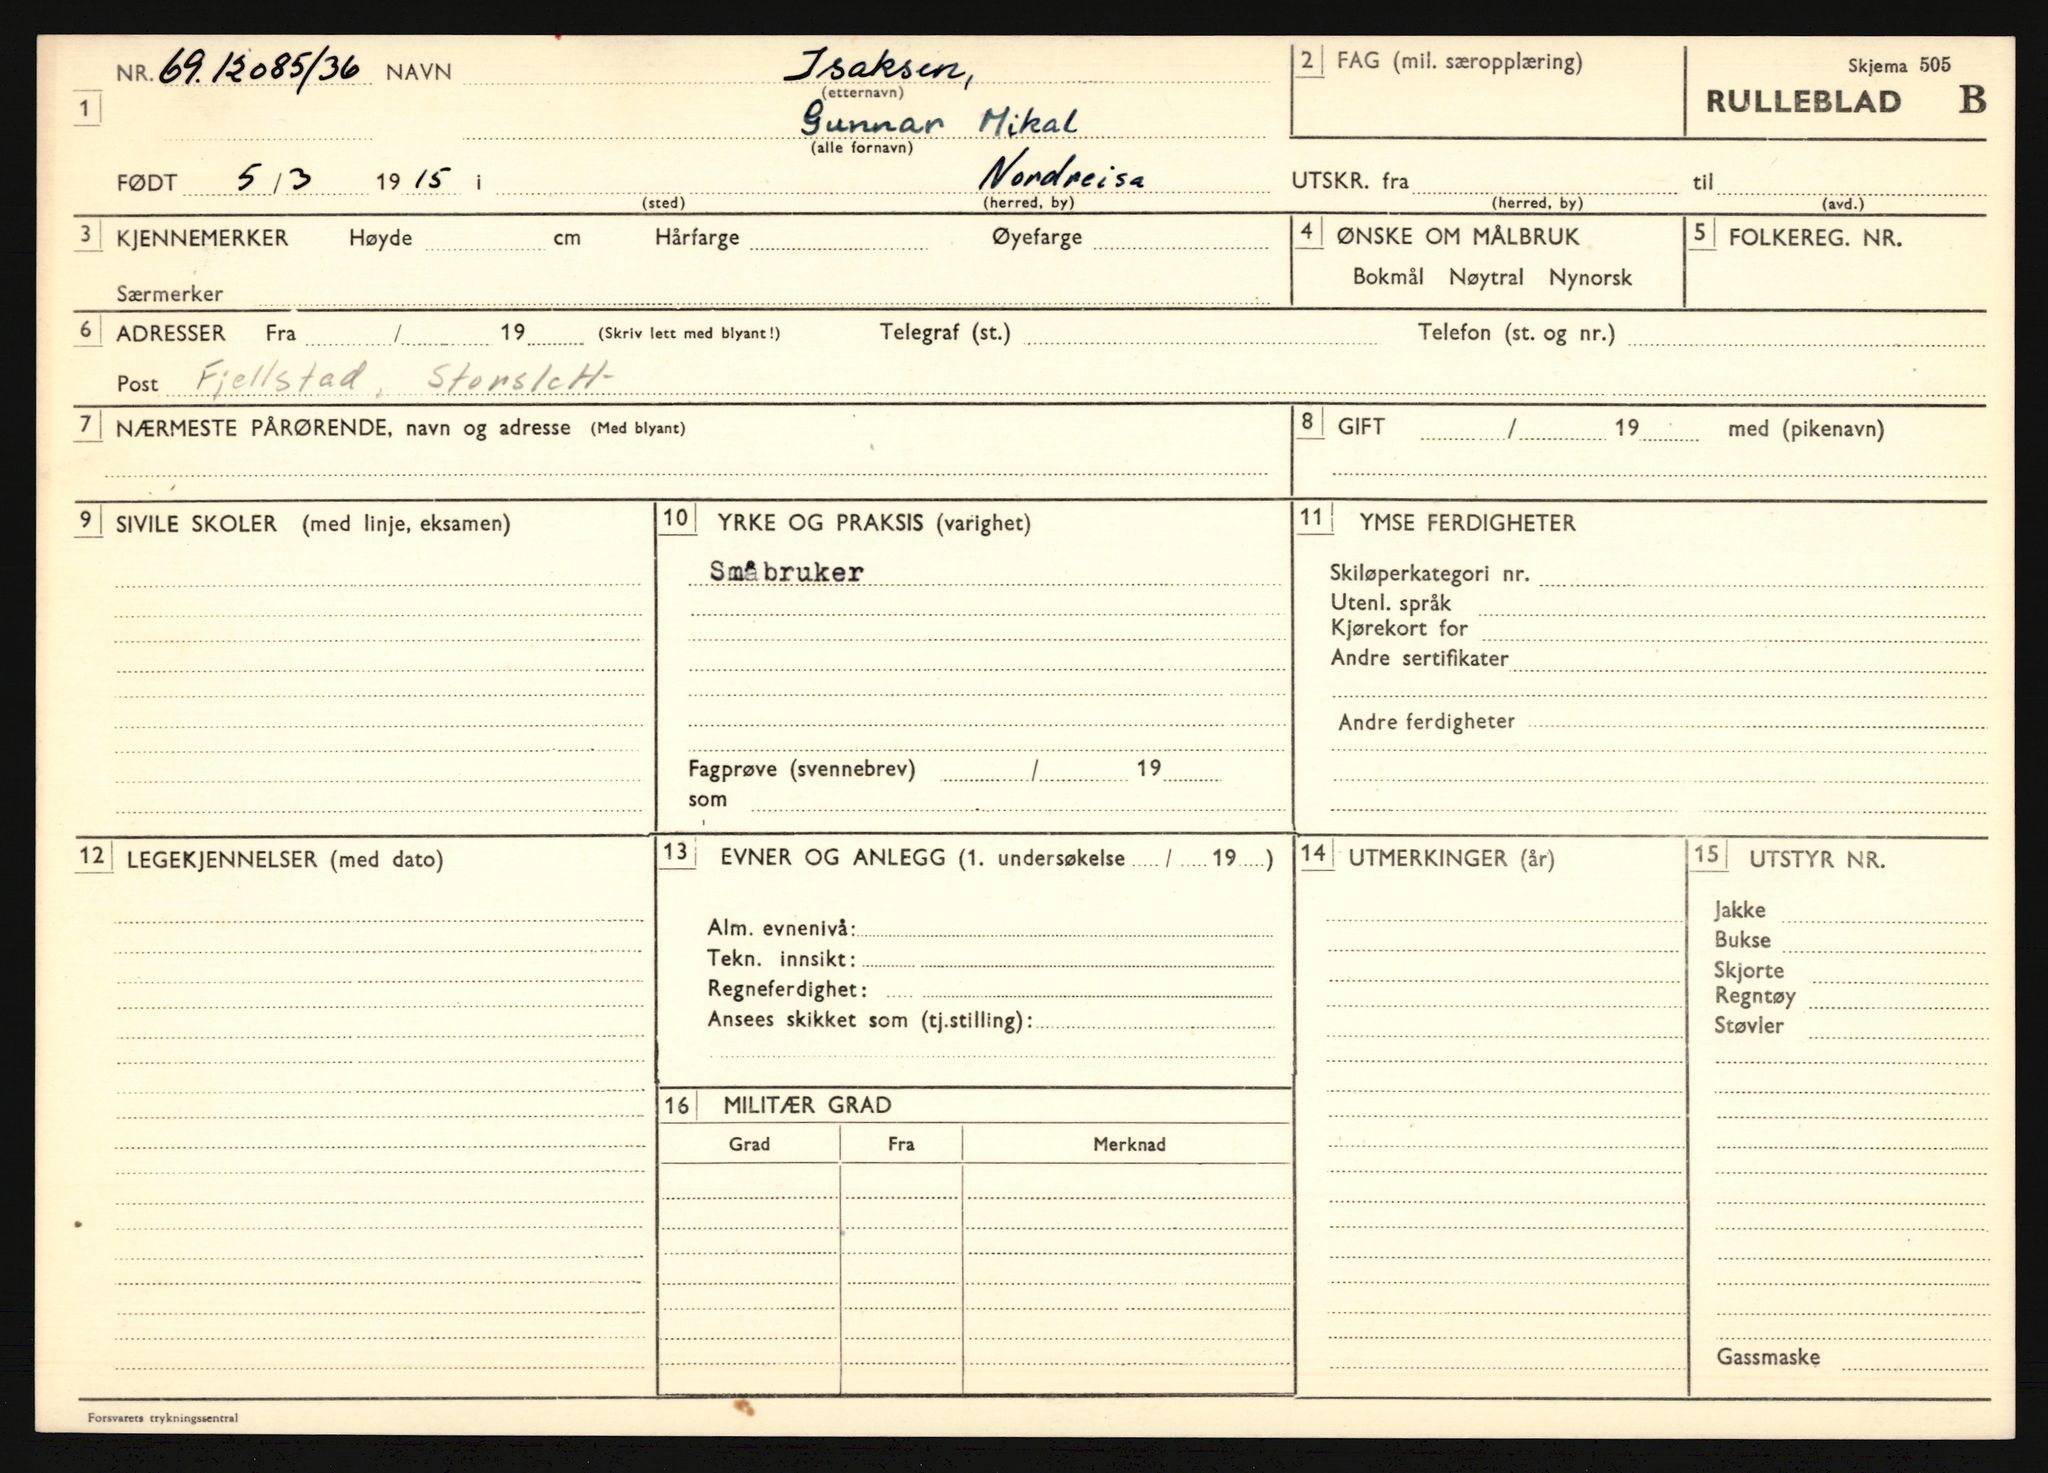 NR. 69.12085/36 NAVN Isaksen,
(etternavn)
2 FAG (mil. særopplæring)
Skjema 505
RULLEBLAD B
1
Gunnar Mikal
(alle fornavn)
FØDT 5/3 1915 i Nordreisa UTSKR. fra til
(sted) (herred, by) (herred, by) (avd.)
3 KJENNEMERKER Høyde cm Hårfarge Øyefarge
Særmerker
4 ØNSKE OM MÅLBRUK
Bokmål Nøytral Nynorsk
5 FOLKEREG. NR.
6 ADRESSER Fra / 19 (Skriv lett med blyant!) Telegraf (st.) Telefon (st. og nr.)
Post Fjellstad, Storslett
7 NÆRMESTE PÅRØRENDE, navn og adresse (Med blyant)
8 GIFT / 19 med (pikenavn)
9 SIVILE SKOLER (med linje, eksamen)
10 YRKE OG PRAKSIS (varighet)
Småbruker
Fagprøve (svennebrev) / 19
som
11 YMSE FERDIGHETER
Skiløperkategori nr.
Utenl. språk
Kjørekort for
Andre sertifikater
Andre ferdigheter
12 LEGEKJENNELSER (med dato)
13 EVNER OG ANLEGG (1. undersøkelse / 19 )
Alm. evnenivå:
Tekn. innsikt:
Regneferdighet:
Ansees skikket som (tj.stilling):
14 UTMERKINGER (år)
15 UTSTYR NR.
Jakke
Bukse
Skjorte
Regntøy
Støvler
Gassmaske
16 MILITÆR GRAD
Grad Fra Merknad
Forsvarets trykningssentral